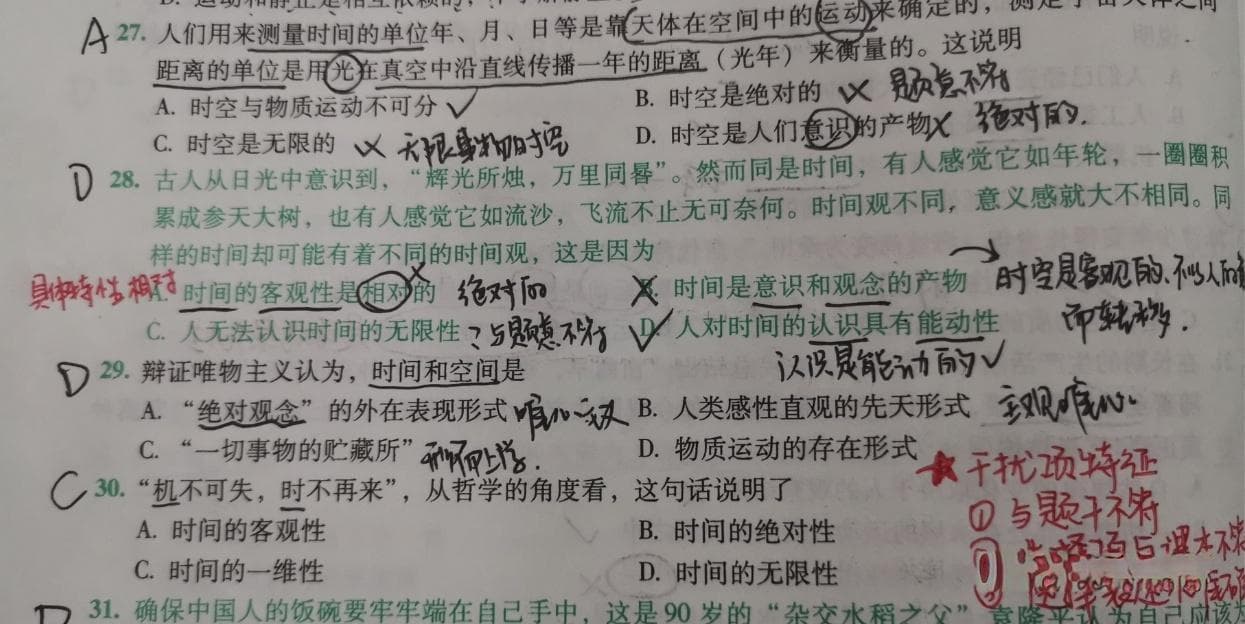 A 27. 人们用来测量时间的单位年、月、日等是靠天体在空间中的运动来确定的，
距离的单位是用光在真空中沿直线传播一年的距离（光年）来衡量的。这说明
A. 时空与物质运动不可分 ✓ B. 时空是绝对的 × 题意不符
C. 时空是无限的 × D. 时空是人们意识的产物× 绝对的.
D 28. 古人从日光中意识到，“辉光所烛，万里同晷”。然而同是时间，有人感觉它如年轮，一圈圈积
累成参天大树，也有人感觉它如流沙，飞流不止无可奈何。时间观不同，意义感就大不相同。同
样的时间却可能有着不同的时间观，这是因为
具体特性相对 A. 时间的客观性是相对的 × 绝对的 B. 时间是意识和观念的产物 → 时空是客观的.不以人的
C. 人无法认识时间的无限性 ？与题意不符 ✓ D. 人对时间的认识具有能动性 而转移.
认识是能动的✓
D 29. 辩证唯物主义认为，时间和空间是
A. “绝对观念”的外在表现形式 唯心主义 B. 人类感性直观的先天形式 主观唯心.
C. “一切事物的贮藏所” 形而上学. D. 物质运动的存在形式
★干扰项特征
C 30. “机不可失，时不再来”，从哲学的角度看，这句话说明了
①与题干不符
A. 时间的客观性 B. 时间的绝对性
C. 时间的一维性 D. 时间的无限性
D 31. 确保中国人的饭碗要牢牢端在自己手中，这是90岁的“杂交水稻之父”袁隆平认为自己应该